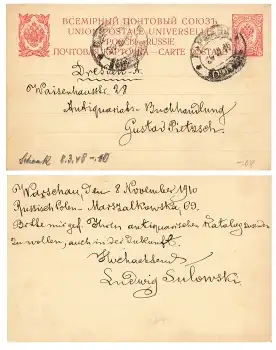 ВСЕМІРНЫЙ ПОЧТОВЫЙ СОЮЗЪ.
UNION POSTALE UNIVERSELLE.
РОССІЯ RUSSIE
ПОЧТОВАЯ КАРТОЧКА-CARTE POSTALE
Dresden A.
Waisenhausstr. 28
Antiquariats-Buchhandlung
Gustav Pietzsch
8.3.48
Warschau, den 8 November 1910
Russisch Polen - Marszalkowska, 69.
Bitte mir gef. Ihren antiquarischen Katalog senden
zu wollen, auch in der Zukunft.
Hochachtend
Ludwig Sulowski.